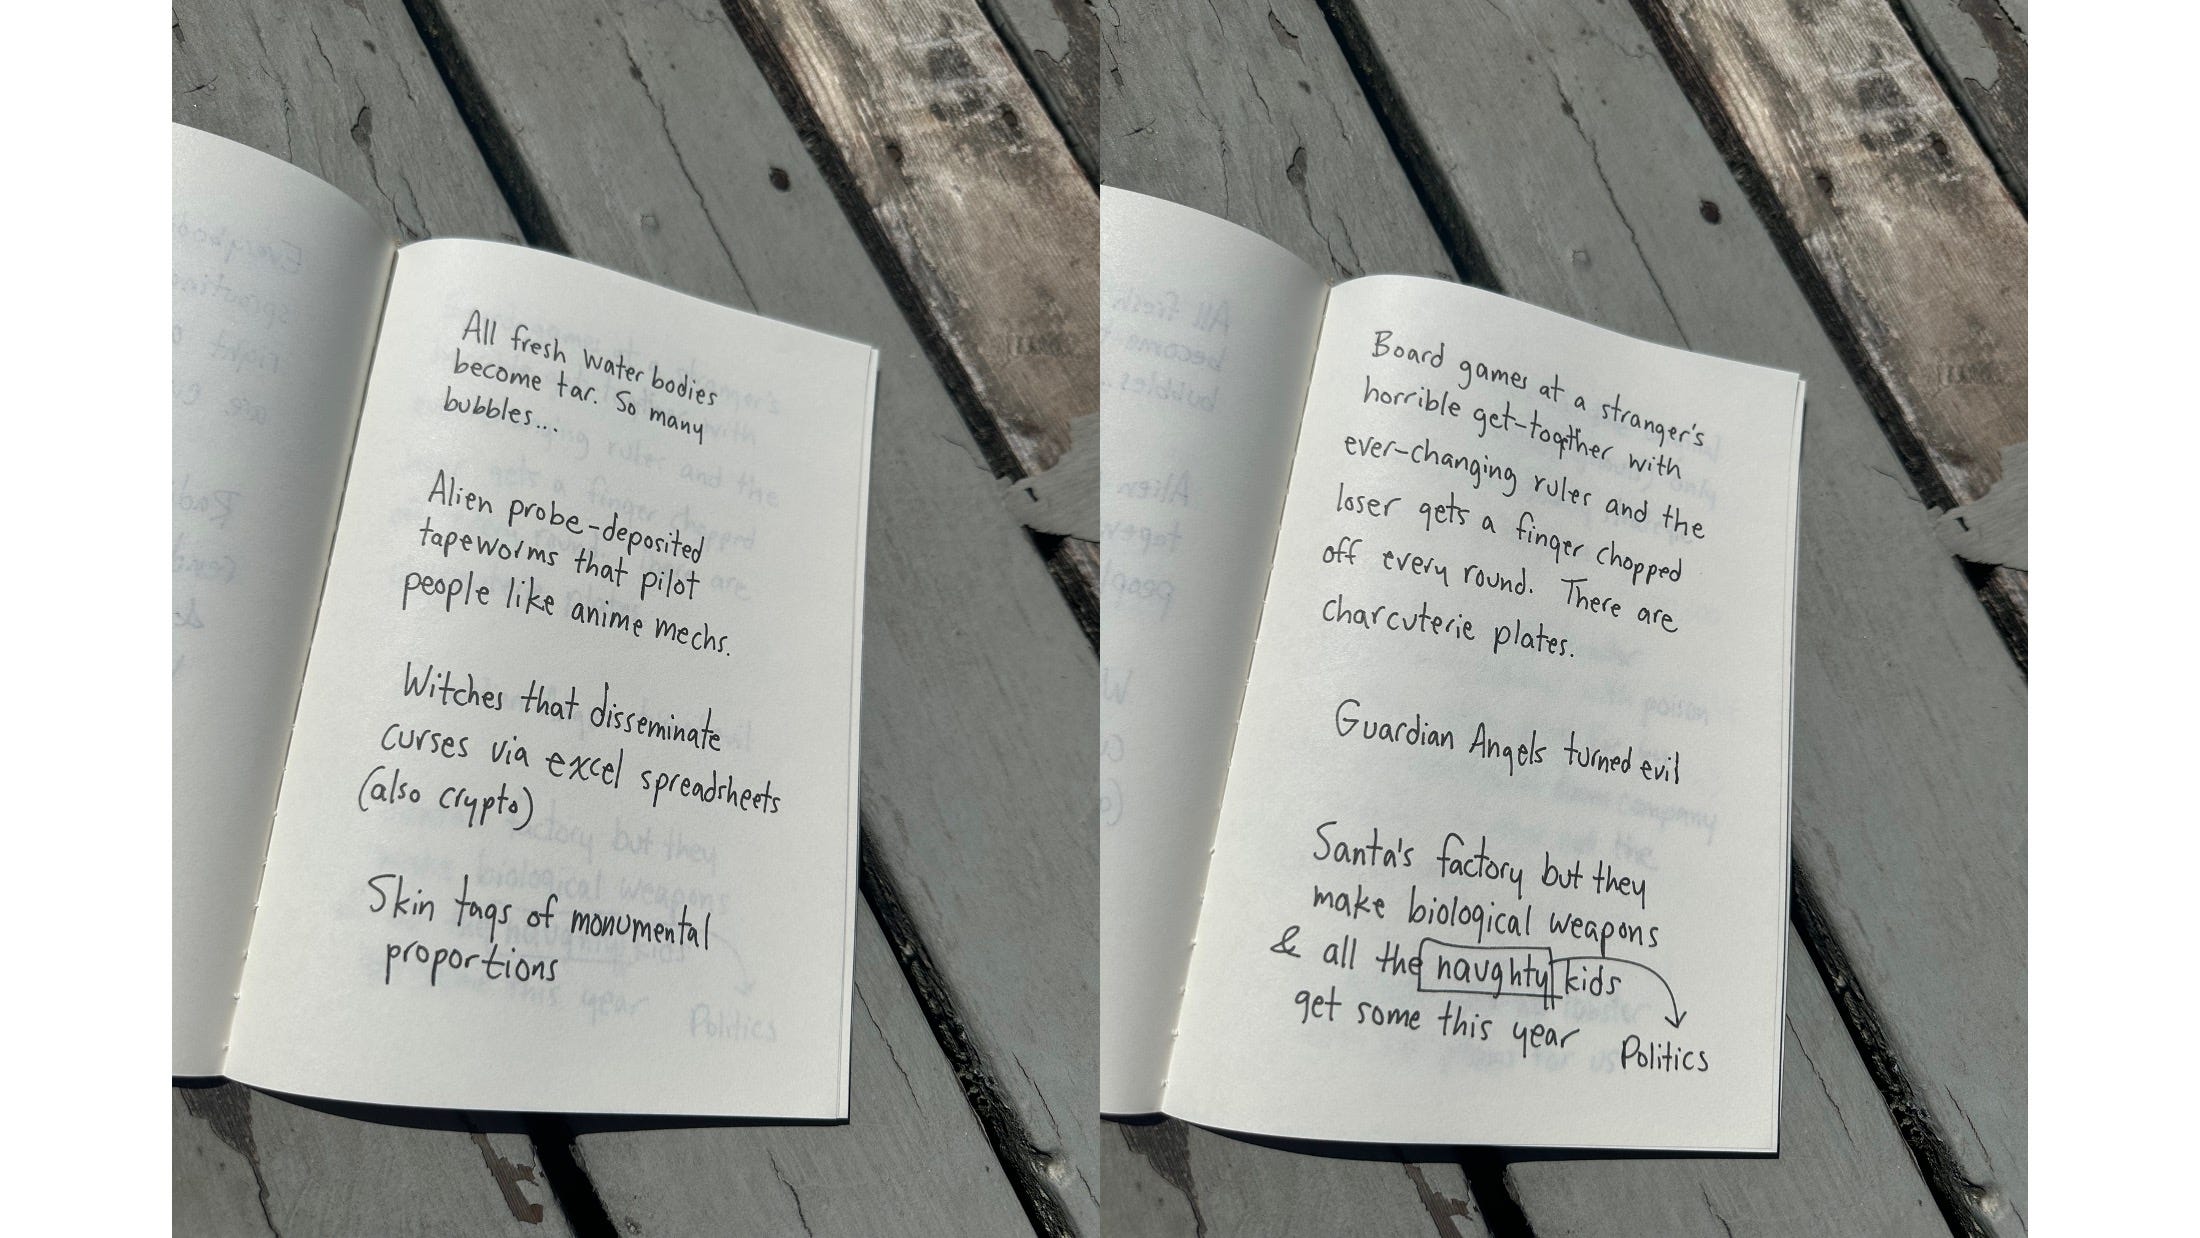 All fresh water bodies
become tar. So many
bubbles...
Alien probe-deposited
tapeworms that pilot
people like anime mechs.
Witches that disseminate
curses via excel spreadsheets
(also crypto)
Skin tags of monumental
proportions
Board games at a stranger's
horrible get-together with
ever-changing rules and the
loser gets a finger chopped
off every round. There are
charcuterie plates.
Guardian Angels turned evil
Santa's factory but they
make biological weapons
& all the naughty kids
get some this year
Politics